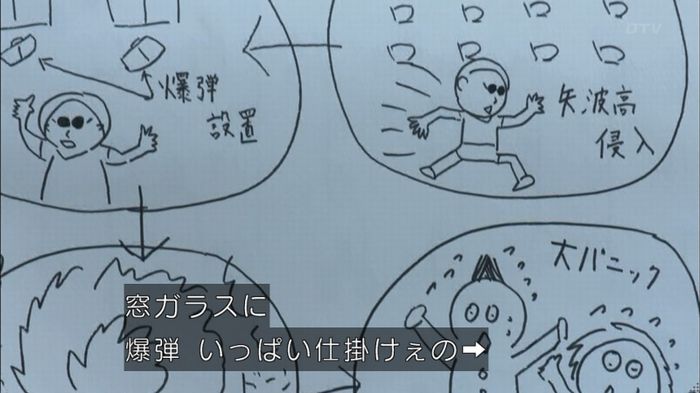 DTV
爆弾
設置
矢波高
侵入
大パニック
ドーン
窓ガラスに
爆弾 いっぱい仕掛けぇの➡